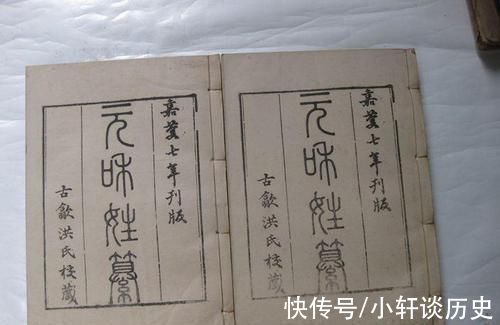 嘉慶七年刊版
元和姓纂
古歙洪氏校藏
嘉慶七年刊版
元和姓纂
古歙洪氏校藏
快传号/小轩谈历史